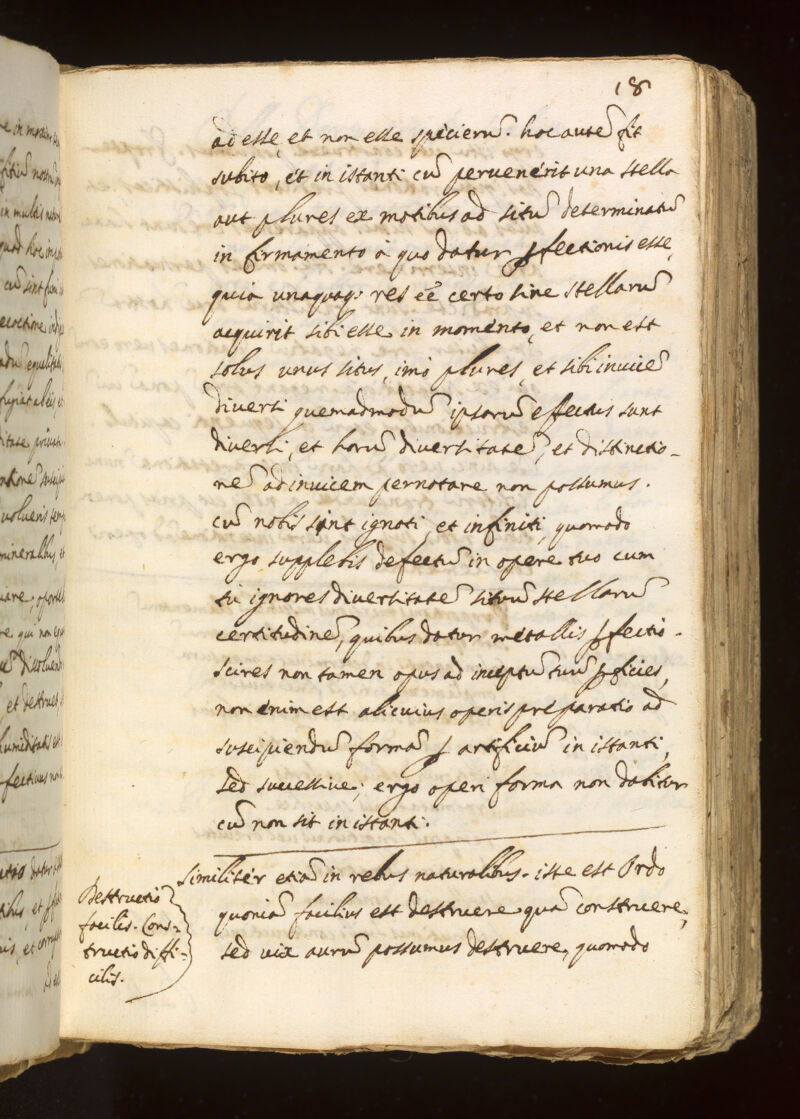 18
ad esse, et non esse specierū. hoc autē fit
subito, et in istanti cū pervenerit una stella
aut plures ex motibus ad situ determinatū
in firmamento à quo datur ꝑfectionis esse,
quia unaquaq; res eē certo sine stellarū
acquirit sibi esse in momento, et non est
solus unus situs, imò plures, et sibi invicē
diversi quemadmodū ipsorū effectus sunt
diversi, et horū diversitatē, et distinctio-
nē adinvicem pernotare non possumus.
cū nobis sint ignoti, et infiniti, quomodo
ergo supplebis defectū in opere tuo cum
tu ignores diversitatē situū stellarū
certitudinē, quibus datur metallis ꝑfectio.
scires non tamen opus ad inceptū tuū ꝑficies,
non enim est alicuius operis preparatio ad
suscipiendū formā ꝑ artificiū in istanti,
sed successive; ergo operi forma non dabitur
cū non sit in istanti.
Similiter etiā in rebus naturalibus. iste est Ordo
quoniā facilius est destruere quā construere,
sed vix aurū possumus destruere, quomodo
Destructio
facilis. Cons-
tructio diffi-
cilis.